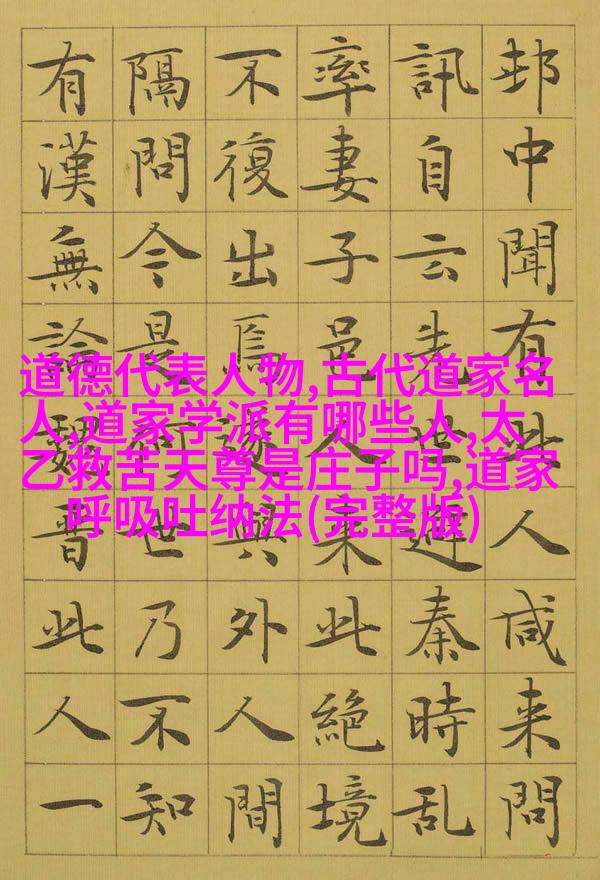 邨中聞有此人咸来問
訊自云先世避秦時乱
率妻子邑人来此絶境
不復出焉遂與外人間
隔問今是何世乃不知
有漢無論魏晋此人一
道德代表人物,古代道家名
人,道家学派有哪些人,太
乙救苦天尊是庄子吗,道家
呼吸吐纳法(完整版)